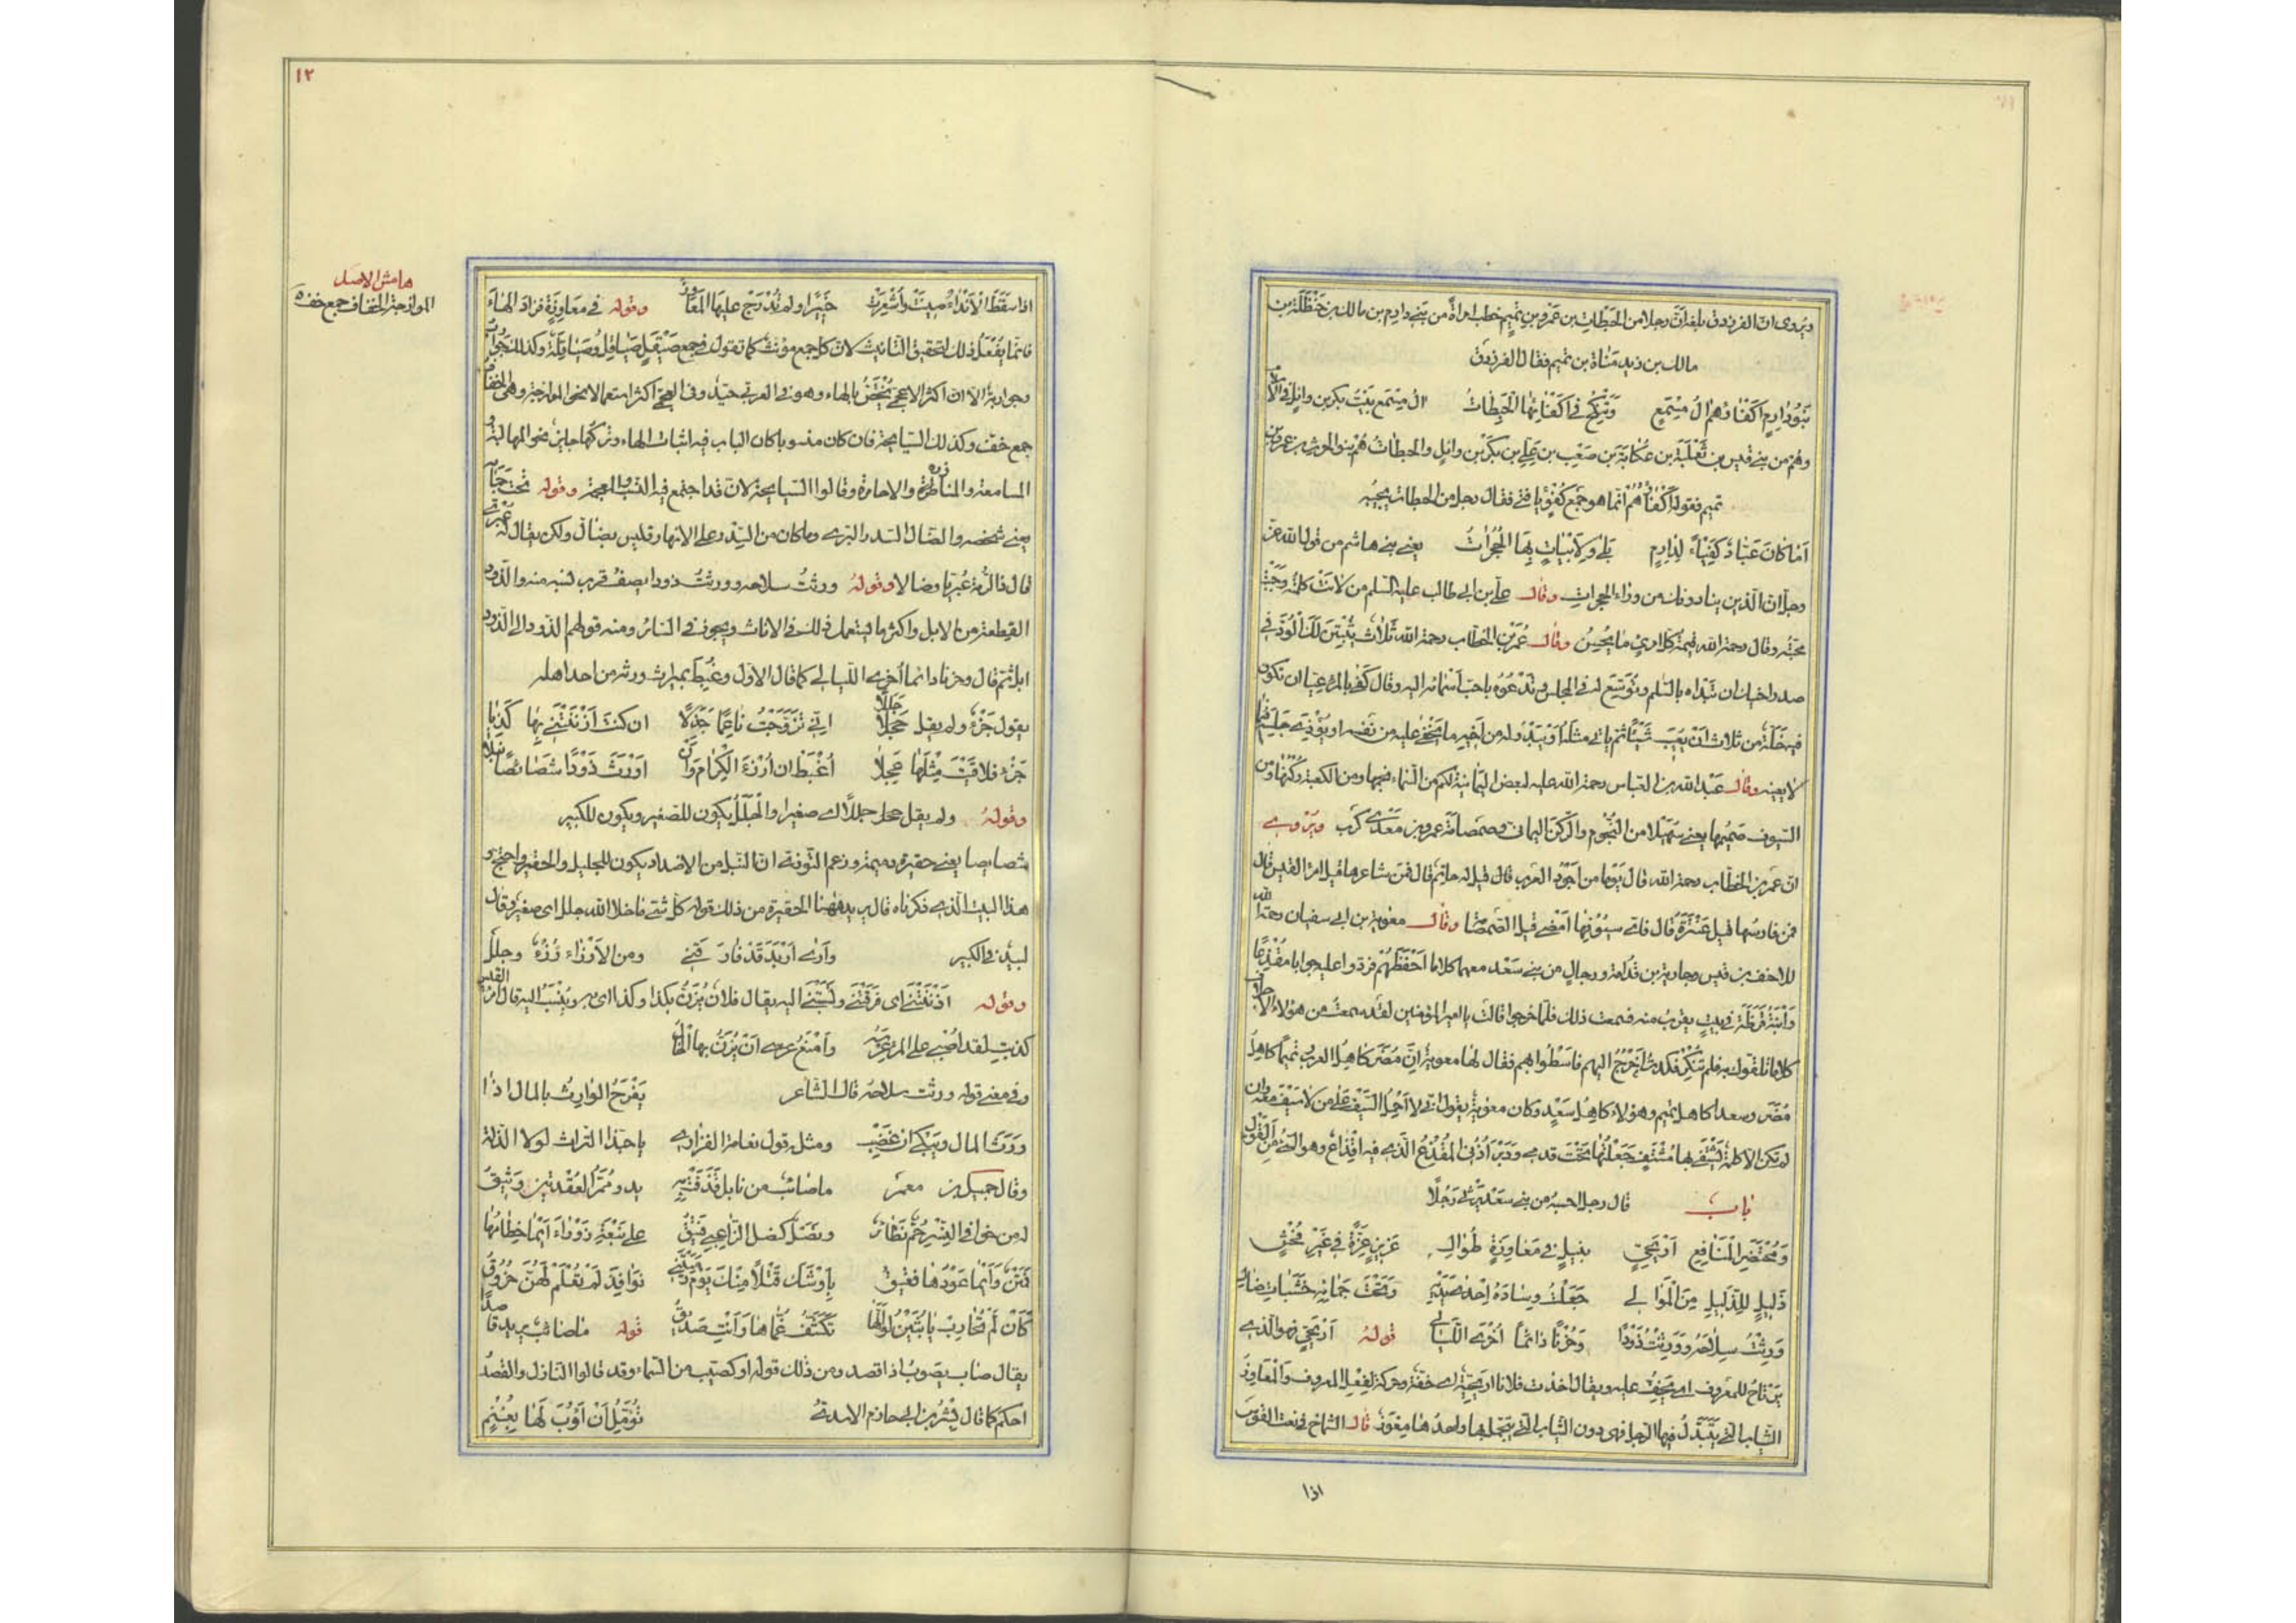 ويروى ان الفرزدق بلغه انّ رجلا من الحَبِطات بن عمرو بن تميم خطب امراةً من بني دارم بن مالك بن حنظلة بن
مالك بن زيد مَناة بن تميم فقال الفرزدق
بَنُو دارِمٍ اَكْفَاؤُهم الُ مِسْمَعٍ وَتَنْكِحُ فى اَكْفَائِهَا الْحَبِطَاتُ ال مِسْمَع بَيْتُ بكر بن وائل فى الاسلام
وهُم من بني قيس بن ثَعْلَبَة بن عُكابَة بن صَعْب بن عَلِى بن بكر بن وائل والحَبِطاتُ هُم بنو الحرث بن عمرو بن
تميم فقوله اَكْفَاؤُهُم انّما هو جمع كُفْؤٍ يا فتى فقال رجل من الحبطات يجيبُه
اَمَا كَانَ عَبّادٌ كَفِيْاً لِدارِمٍ بَلٰى وَلاَبْيَاتٍ بِهَا الْحُجُرَاتُ يعنى بني هاشم من قول الله عز
وجل ان الذين ينادونك من وراء الحجرات وقال على بن ابى طالب عليه السلم من لانَتْ كلمتُه وَجَبَتْ
محبّته وقال رحمه الله قيمةُ كلّ امرئٍ ما يُحْسِنُ وقال عُمَر بن الخطاب رحمه الله ثَلَاثٌ يُثْبِتنَ لَكَ الْوُدَّ فى
صدر اخيك ان تَبْدَاه بالسلم وتُوَسِّعَ له فى المجلس وتَدْعُوَه باحبّ اسمائه اليه وقال كفى بالمرء غيا ان تكون
فيه خَلّة من ثلاث اَنْ يعيب شَيْئاً ثم ياتى مثله اَوْ يَبْدُوَ له من اَخيه ما يَخْفى عليه من نفسه او يُؤذِىَ جليسه فيما
لا يعنيه وقال عبد الله بن العباس رحمة الله عليه لبعض اليَمَانية لكم من السماء نجمها ومن الكعبة ركنها ومن
السيوف صَمِيمُها يعنى سُهَيْلا من النُّجُوم والرُّكنَ اليمانى وصَمصامَة عمرو بن مَعْدى كَرِب ويُرْوى
ان عمر بن الخطاب رحمه الله قال يَوْما من اَجْوَدُ العرب قال قيل له حاتمٌ قال فمَن شاعرها قيل امرؤ القيس قال
فمن فارسُها قيل عَنْتَرةُ قال فاىُّ سيُوفِها اَمْضى قيل الصَّمصامة وقال معوية بن ابى سفيان رحمه الله
للاحنف بن قيس وجارية بن قُدامة ورجالٍ من بني سَعْد معهما كلاما اَحْفَظَهُم فردوا عليه جوابا مُقْذِعاً
وَابْنَةُ قَرَظَة فى بيتٍ يقرب منه فسمعت ذلك فلمّا خرجوا قالت يا امير المؤمنين لقد سمعت من هؤلاء الاجلاف
كلاما تلقوك به فلم تُنكِر فكدتُ اَخْرُجُ اليهم فاَسْطُو بهم فقال لها معوية انّ مُضَر كاهِلُ العرب وتميما كاهل
مُضَر وسعدا كاهل تميم وهؤلاء كاهِلُ سَعْدٍ وكان معوية يقول انى لا اَحْمِلُ السَّيْفَ عَلى من لا سَيْفَ معه وان
لم تكن الا كلمةٌ يَشْتَفى بها مُشْتَفٍ جَعَلْتُها تَحْتَ قدمى ودَبْرَ اُذُنى المُقْذِعُ الذى فيه اِقْذاعٌ وهو السَّىّءُ مِن القول
باب قال رجل احسبه من بني سَعْد يَرْثى رَجُلًا
وَمُحْتَضَرِ الْمَنَافِعِ اَرْيَحِىٍّ نبيلٍ فى مَعَاوِزَةٍ طُوالِ عَزيزٍ عِزَّةً فى غَيْرِ فُحْشٍ
ذَلِيلٍ لِلذَّلِيلِ مِنَ الْمَوَالى جَعَلْتُ وِسادَهُ اِحْدى يَدَيْهِ وَتَحْتَ جَمَائِهِ خَشَبَاتِ ضالِ
وَرِثْتُ سِلَاحَهُ وَوَرِثْتُ ذَوْداً وَحُزْنًا دَائِماً اُخْرَى اللَّيَالى قولهُ اَرْيَحِىّ هو الذى
يَرْتاحُ للمعروف اى يَخِفُّ عليه ويقال اخذت فلانا اريَحيّة اى خفّة وحركة لفِعْلِ المعروف والمَعَاوِزُ
الثياب التى يَتَبَذَّلُ فيها الرجل فهى دون الثياب التى يتجمل بها واحدُها مِعْوَزٌ قال الشماخ فى نعت القوس
اذا
١٢
هامش الاصل
الموازجة الخفاف جمع خف
اذا سَقَطَ الْاَنْدَاءُ صِينَتْ وَاُشْعِرَتْ حَبِيرًا ولم تُدْرَجْ عليها المَعَاوِزُ وقوله فى مَعَاوِزَةٍ فزاد الهاءَ
فانّما يَفْعَلُ ذلك لتحقيق التانيث لانّ كل جمع مؤنث كما تقول فى جمع صَيْقَلٍ صَيَاقِلُ وصَيَاقِلَةٌ وكذلك جَوارِبُ
وجواربة الا ان اكثر الاعجمى يُخْتَصُّ بالهاء وهو فى العربى جيّد وفى العجمى اكثر استعمالا نحو الموازجة وهى الخفاف
جمع خف وكذلك السيابجة فان كان منسوبا كان الباب فيه اثبات الهاء وتركُها جائز نحو المهالبة و
المسامعة والمناذرة والاحامرة وقالوا السيابجة لانه قد اجتمع فيه النسب والعجمة وقوله تحت جَمَائِه
يعنى شخصه والضال السدر البرى وما كان من السِّدر على الانهار فليس بضال ولكن يقال له عُبْرى
قال ذو الرمّة عُبْرِيا وضالا وقوله ورثتُ سلاحه وورثتُ ذودا يصفُ قرب نسبه منه والذَّود
القطعة من الابل واكثر ما يستعمل ذلك فى الاناث ويجوز فى السائر ومنه قولهم الذود الى الذود
ابل ثم قال وحزنا دائما اُخرى الليالى كما قال الاوّل وغُبِطَ بميراث ورثه من احد اهله
يقول جَزْءٌ ولم يقل جَلَلًا انى تَزَوَّجْتُ ناعِماً جَذِلًا ان كنت اَزْنَنْتَنى بِها كَذِبًا
جَزْءُ فلاقَيْتَ مِثْلَها عَجِلا اُغْبَطُ ان اُرْزَءَ الْكِرَامَ وَاَن اُورَثَ ذَوْدًا شَصَائِصًا نَبَلا
وقولهُ ولم يقل جللا اى صغيرا والجَلَلُ يكون للصغير ويكون للكبير
شصايصا يعنى حقيرة دميمة وزعم التوّزىّ انّ النبل من الاضداد يكون للجليل والحقير واحتج و
هذا البيت الذى ذكرناه قال يريد ههنا الحقيرة من ذلك قوله كل شئ ما خلا الله جلل اى صغير وقال
لبيد فى الكبير وَاَرى اَرْبَدَ قَدْ فارَقَنى ومن الاَرْزاء رُزْءٌ وجلل
وقوله اَزْنَنْتَنى اى قَرَفْتَنى ونَسَبْتَنى اليه يقال فلان يُزَنُّ بكذا وكذا اى يرمى ويُنْسَبُ اليه قال امرؤ القيس
كذبتِ لقد اُصْبى على المرء عِرْسَه وَاَمْنَعُ عرسى اَنْ يُزَنَّ بها الخالى
وفى معنى قوله ورثت سلاحه قال الشاعر يَفْرَحُ الوارِثُ بالمال اذا
وَرِثَ المال ويَبْكى ان غَضِب ومثله قول نعامة الفزارى يا حبّذا التراث لولا الذلة
وقال جميل بن معمر ما صائبٌ من نابل قَذَفَتْ بِهِ يد ومُمَرُّ العُقْدتين وَثيقُ
له من خوافى النَّسْرِ حُمٌّ نَظَائِرُ ونَصْلٌ كنصل الزاعبى فَتيقُ على نَبْعَةٍ زَوْراءَ اَيْما خِطامُها
فَمَتْنٌ وَاَيْما عودُها فعتيق بِاَوْشَكَ قَتْلًا مِنْكَ يَوْمَ رَمَيْتِنى نَوَافِذَ لَمْ تُعْلَمْ لَهُنَّ خُرُوقُ
كَاَنْ لَمْ نُحَارِبْ يَا بُثَيْنُ لَوَ اَنَّها تَكَشَّفُ غُمّاها وَاَنْتِ صَديقُ قوله ما صائب يريد قاصدا
يقال صاب يصوبُ اذا قصد ومن ذلك قوله او كصيّب من السماء وقد قالوا النازل والقصدُ
احكم كما قال بِشْر بن ابى حازم الاسدى تُؤَمِّلُ اَنْ اَؤُوبَ لَها بِغُنْمٍ